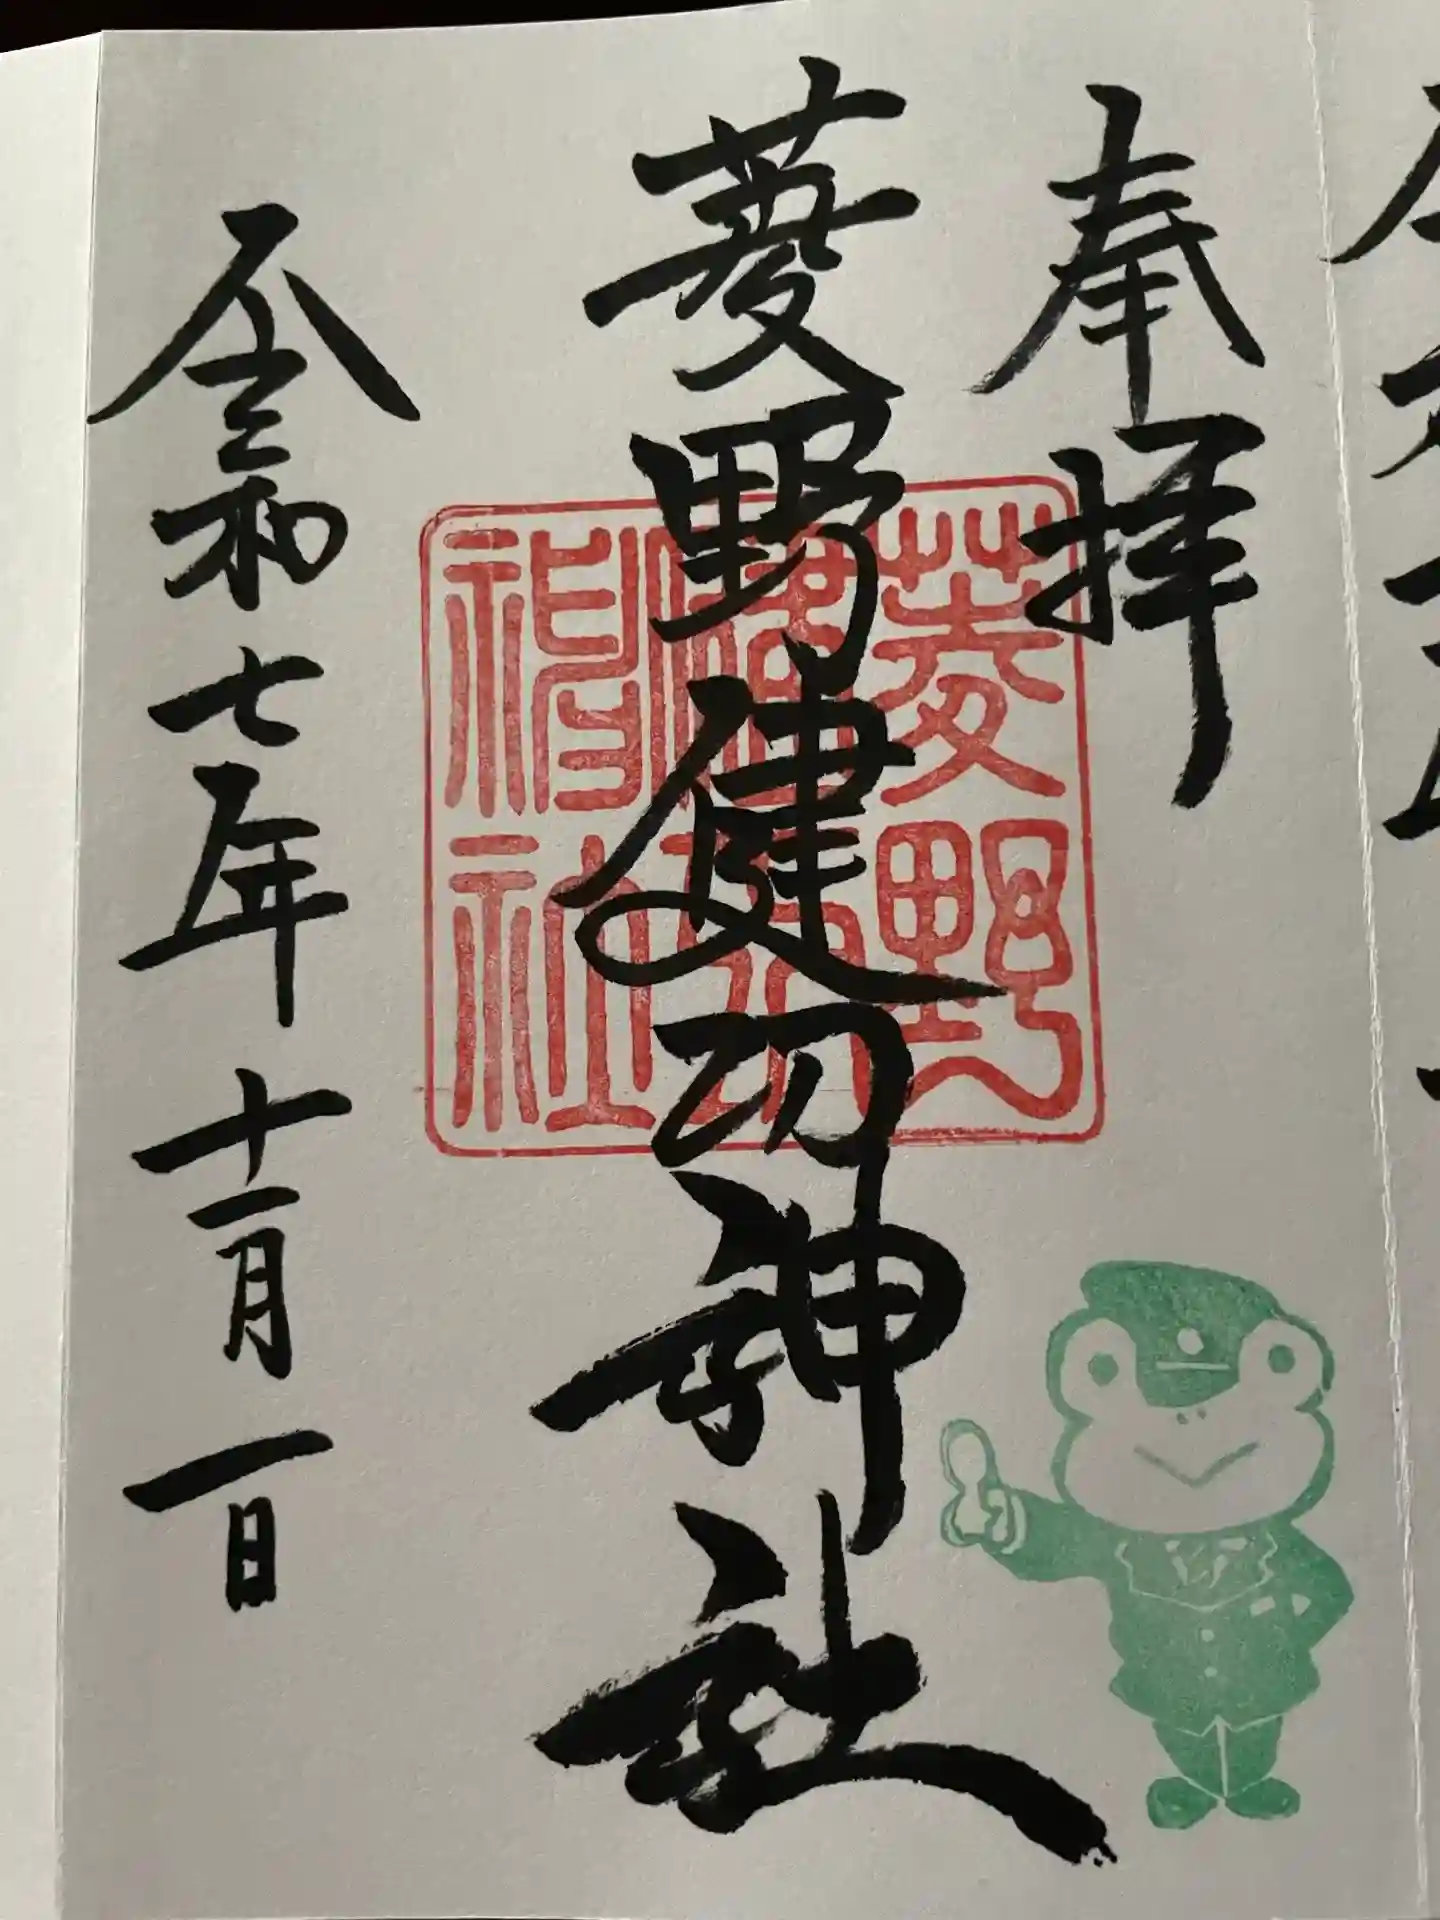 奉拝
菱野健功神社
令和七年十一月一日
菱野
健功
神社